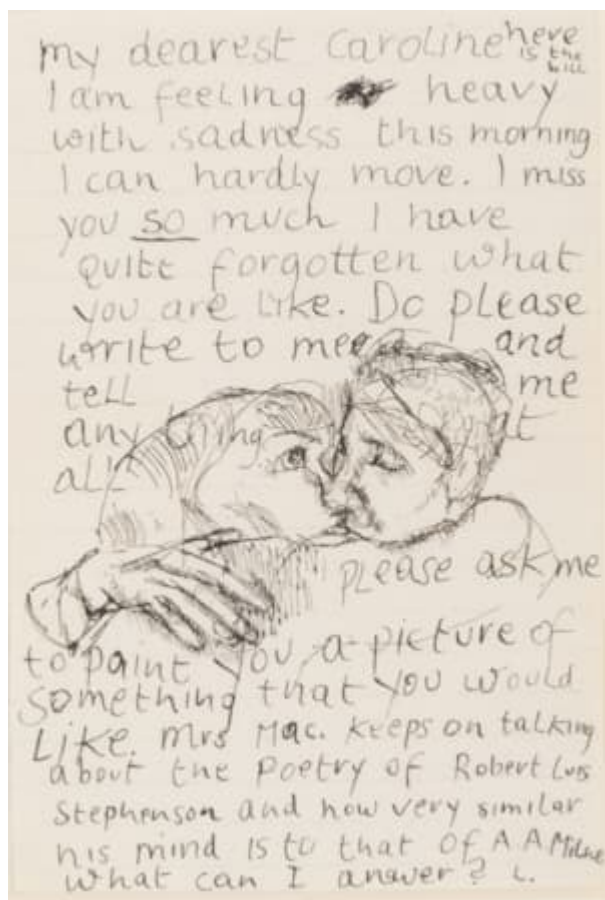 my dearest Caroline here is the bill
I am feeling heavy
with sadness this morning
I can hardly move. I miss
you so much I have
quite forgotten what
you are like. Do please
write to me and
tell me
any thing at
all
please ask me
to paint you a picture of
something that you would
Like. Mrs Mac. keeps on talking
about the Poetry of Robert Luis
Stephenson and how very similar
his mind is to that of A A Milne
What can I answer? L.